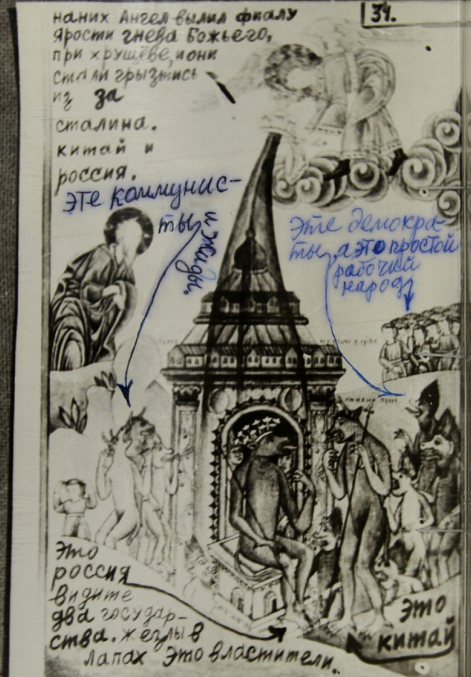 наних Ангел вылил фиалу
34.
ярости гнева Божьего,
при хрущёве, и они
стали грызтись
из за
сталина.
китай и
россия.
эте коммунис-
ты и жиды.
Эте демокра-
ты, а это простой
рабочий
народ
Это
россия
видите
два государ-
ства. жезлы в
лапах это властители.
это
китай